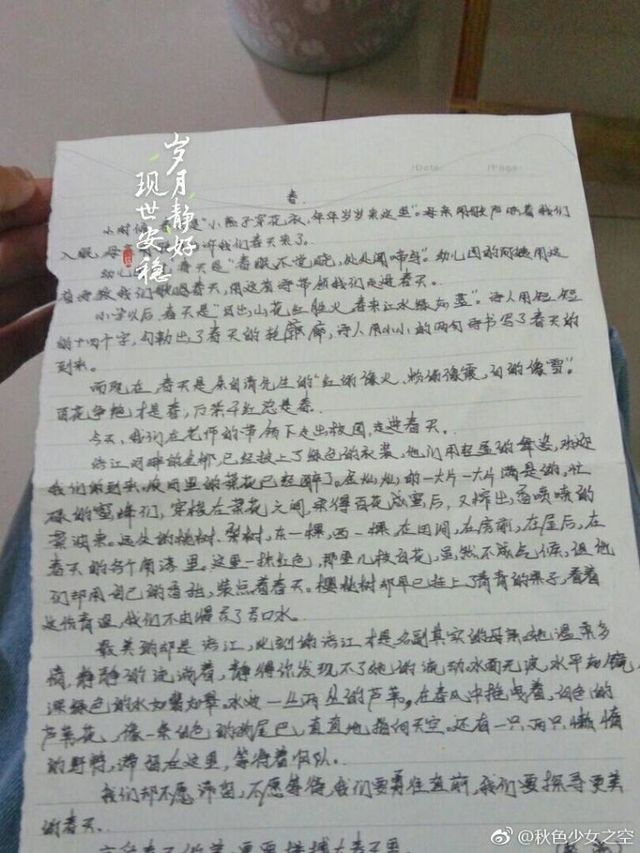 岁月静好
现世安稳
Date: Page:
春
小时候 春 是“小燕子穿花衣,年年岁岁来这里”。母亲用歌声哄着我们
入眠,母 诉我们春天来了。
幼儿 春天是“春眠不觉晓,处处闻啼鸟”。幼儿园的阿姨用这
首诗教我们歌唱春天,用这首诗带领我们走进春天。
小学以后,春天是“日出山花红胜火,春来江水绿如蓝”。诗人用短短
的十四个字,勾勒出了春天的轮廓,诗人用小小的两句诗书写了春天的
到来。
而现在,春天是朱自清先生的“红的像火,粉的像霞,白的像雪”。
百花争艳才是春,万紫千红总是春。
今天,我们在老师的带领下走出校园,走进春天。
江河畔的 ,已经披上了绿色的衣装,他们用轻盈的舞姿,欢迎
我们的到来。田里的菜花已经醉了,金灿灿,的一大片一大片满是的,忙
碌的蜜蜂们,穿梭在菜花之间,采得百花成蜜后,又榨出香喷喷的
菜油来。远处的桃树、梨树,东一棵,西一棵,在田间,在房前,在屋后,在
春天的各个角落里。这里一抹红色,那里几枝白花,虽然不成点缀,但他
们却用自己的香甜,装点着春天。樱桃树却早已挂上了青青的果子,看着
这份青涩,我们不由得吞了吞口水。
最美的却是 江,此刻的 江才是名副其实的母亲。她温柔多
情,静静的流淌着,静得你发现不了她的流动。水面无波,水平如镜,
深绿色的水如翡如翠,水边一丛两丛的芦苇,在春风中摇曳着,白色的
芦苇花,像一条白色的 尾巴,直直地指向天空。还有一只,两只懒惰
的野鸭,滞留在这里,等待着归队。
我们却不愿滞留,不愿等待,我们要勇往直前,我们要探寻更美
的春天。
@秋色少女之空